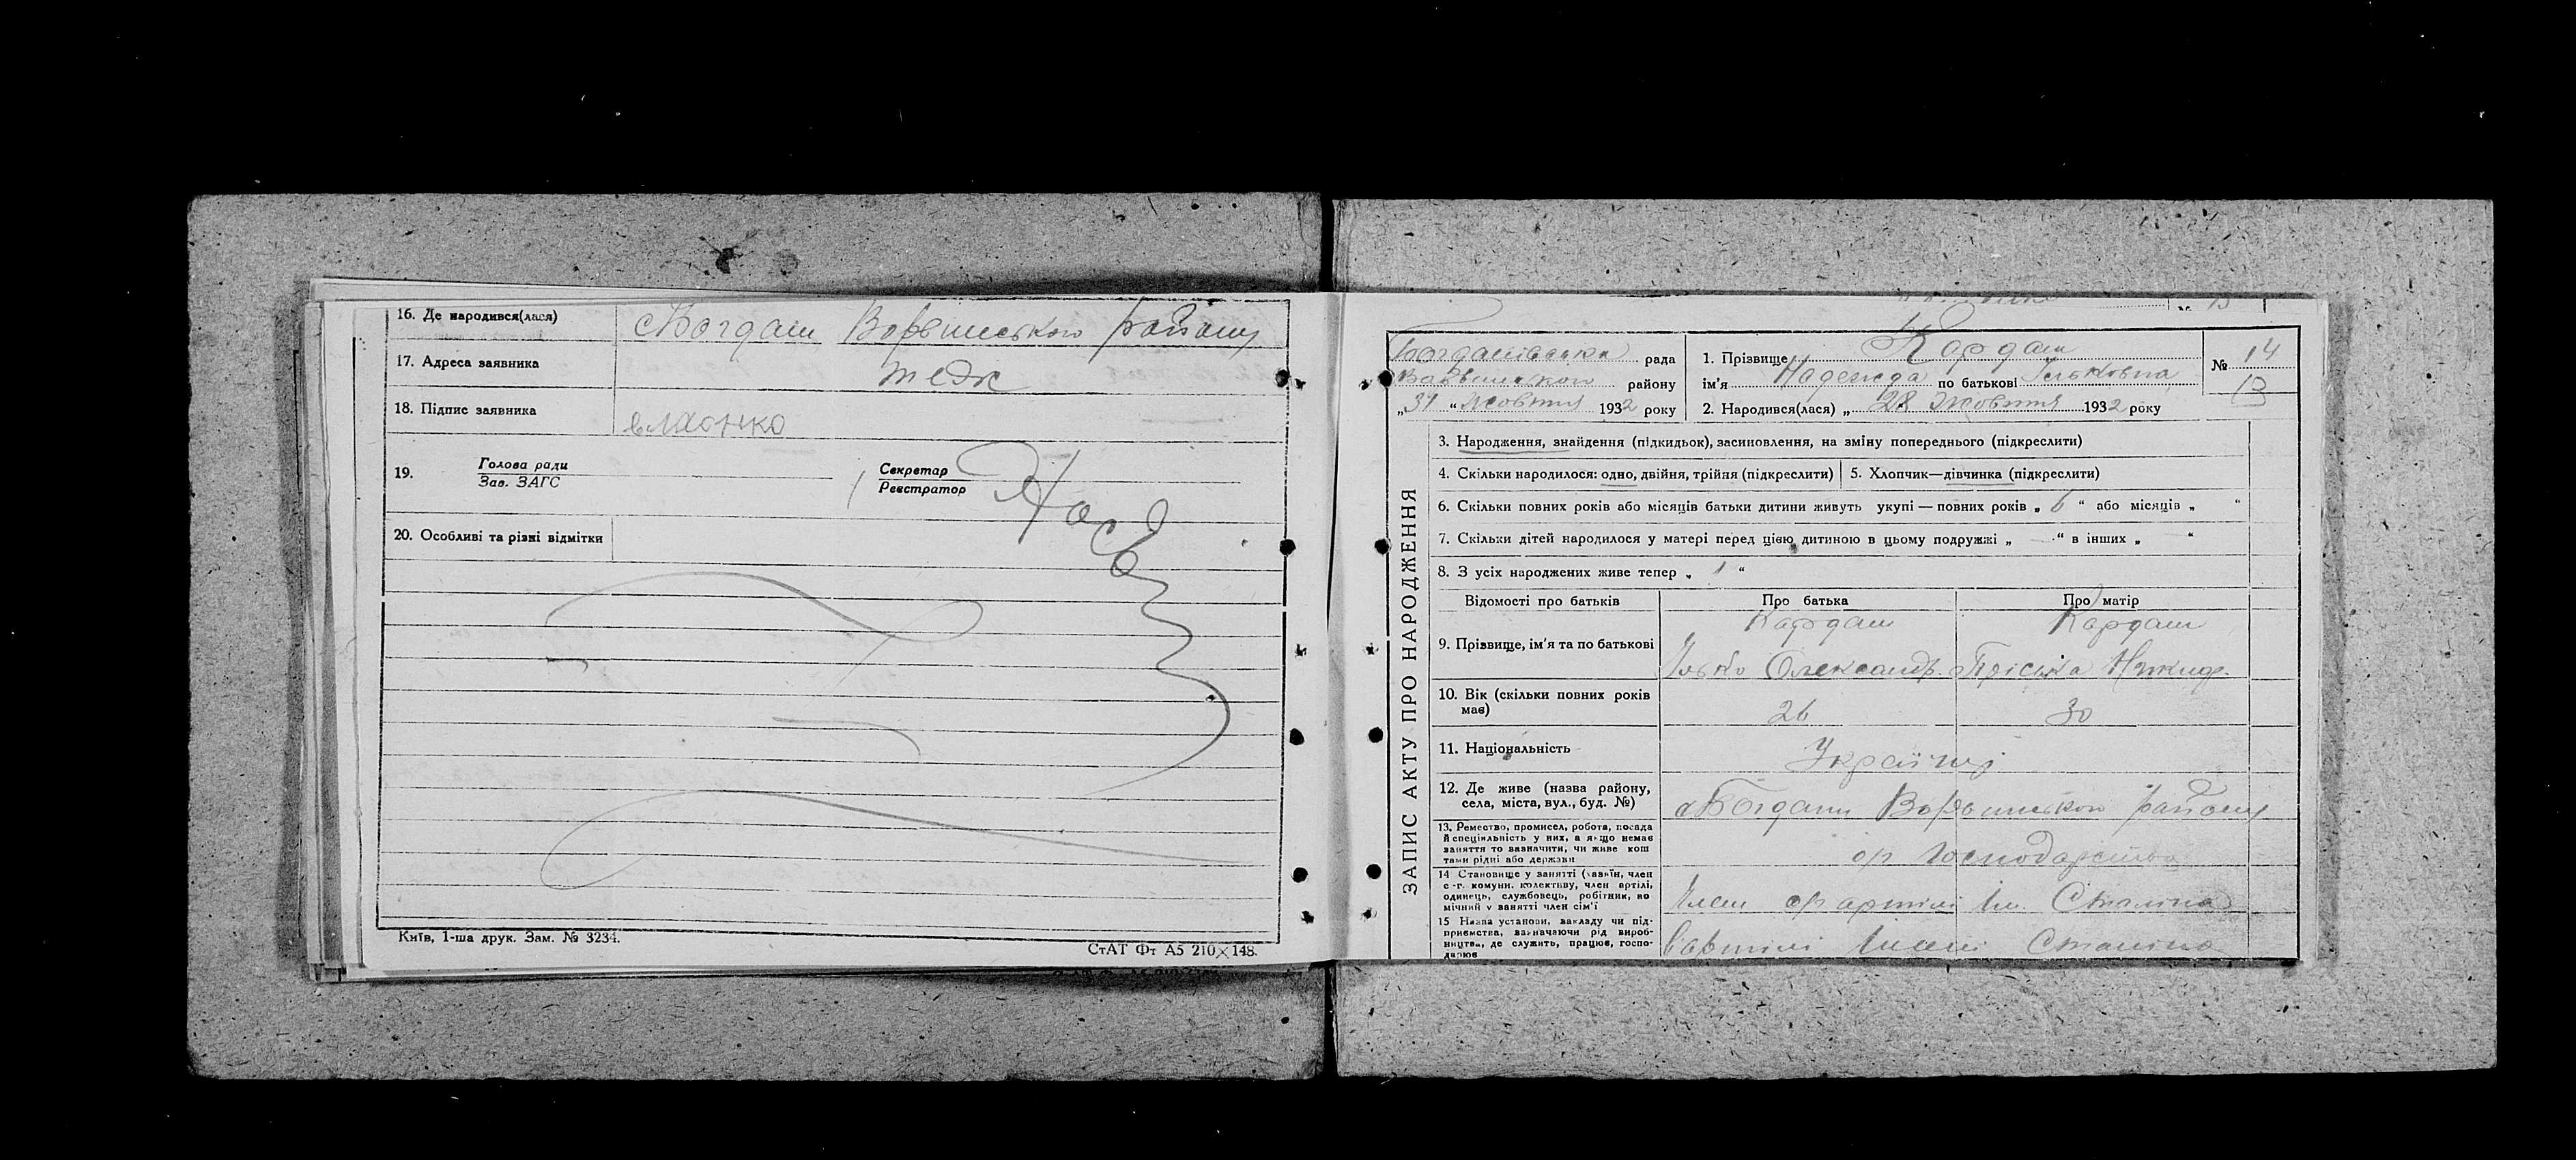 16. Де народився(лася) с Богдани Варвинського району
17. Адреса заявника теж
18. Підпис заявника
19. Голова ради
Зав. ЗАГС
Секретар
Реєстратор
20. Особливі та різні відмітки
Київ, 1-ша друк. Зам. № 3234.
СтАТ Фт А5 210×148.
ЗАПИС АКТУ ПРО НАРОДЖЕННЯ
Богданівська рада
Варвинського району
„31“ Жовтня 1932 року
1. Прізвище Кардаш
ім'я Надежда по батькові Ільковна
2. Народився(лася) „28 Жовтня 1932 року
№ 14
13
3. Народження, знайдення (підкидьок), засиновлення, на зміну попереднього (підкреслити)
4. Скільки народилося: одно, двійня, трійня (підкреслити)
5. Хлопчик—дівчинка (підкреслити)
6. Скільки повних років або місяців батьки дитини живуть укупі — повних років „ 6 “ або місяців „ “
7. Скільки дітей народилося у матері перед цією дитиною в цьому подружжі „ — “ в інших „ — “
8. З усіх народжених живе тепер „ 1 “
Відомості про батьків
Про батька
Про матір
9. Прізвище, ім'я та по батькові
Кардаш
Ілько Олександр.
Кардаш
Пріська Никиф.
10. Вік (скільки повних років має) 26 30
11. Національність Українці
12. Де живе (назва району, села, міста, вул., буд. №) с Богдани Варвинського району
13. Ремество, промисел, робота, посада й спеціяльність у них, а якщо немає заняття то зазначити, чи живе кош тами рідні або держави
ср господарство
14 Становище у занятті (хазяїн, член с.-г. комуни, колективу, член артілі, одинець, службовець, робітник, помічний у занятті член сім'ї
Член ср артілі Ім. Сталіна
15 Назва установи, закладу чи підприємства, зазначаючи рід виробництва, де служить, працює, господарює
в артілі імені Сталіна